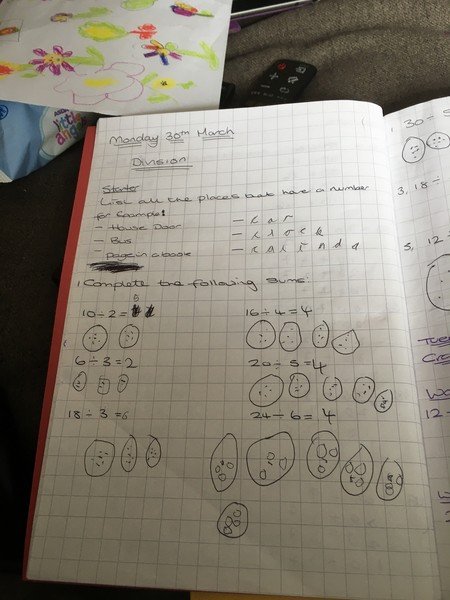 Monday 30th March
Division
Starter
List all the places that have a number
for Example:
- House Door
- Bus
- page in a book
- car
- clock
1 Complete the following sums:
10 ÷ 2 = 5
16 ÷ 4 = 4
6 ÷ 3 = 2
20 ÷ 5 = 4
18 ÷ 3 = 6
24 ÷ 6 = 4
1 30 ÷
3, 18 ÷
5, 12 ÷
12 ÷
little